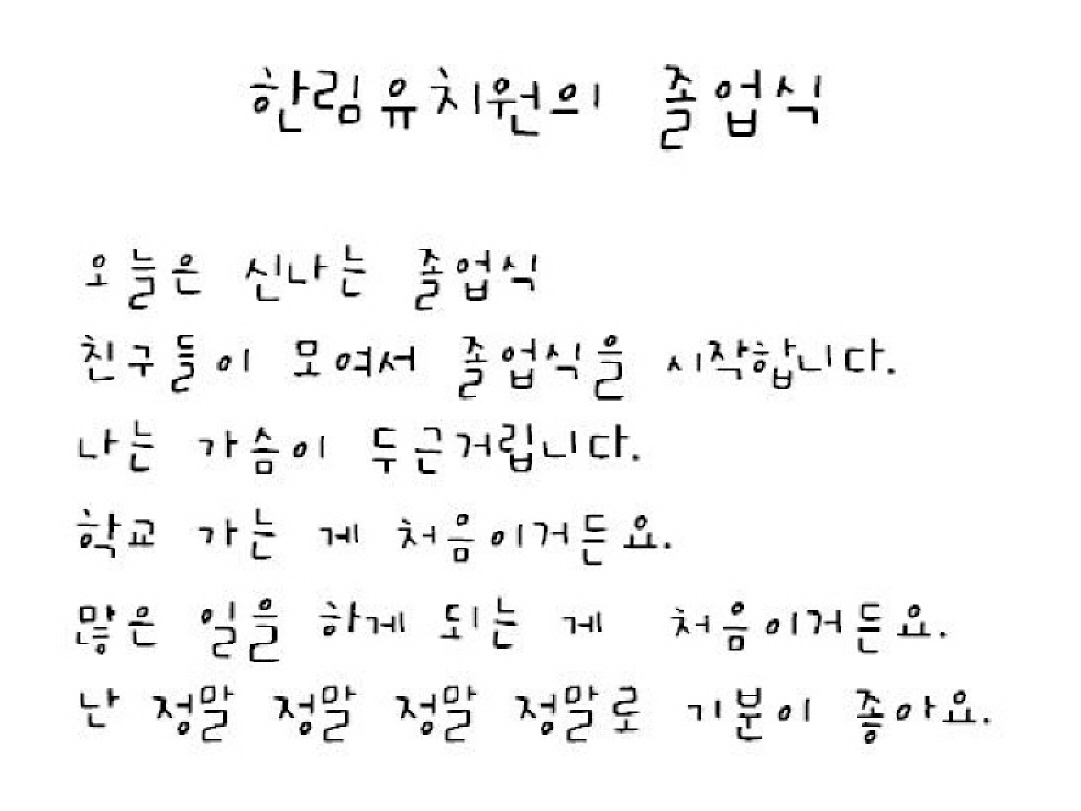 한림유치원의 졸업식
오늘은 신나는 졸업식
친구들이 모여서 졸업식을 시작합니다.
나는 가슴이 두근거립니다.
학교 가는 게 처음이거든요.
많은 일을 하게 되는 게 처음이거든요.
난 정말 정말 정말 정말로 기분이 좋아요.